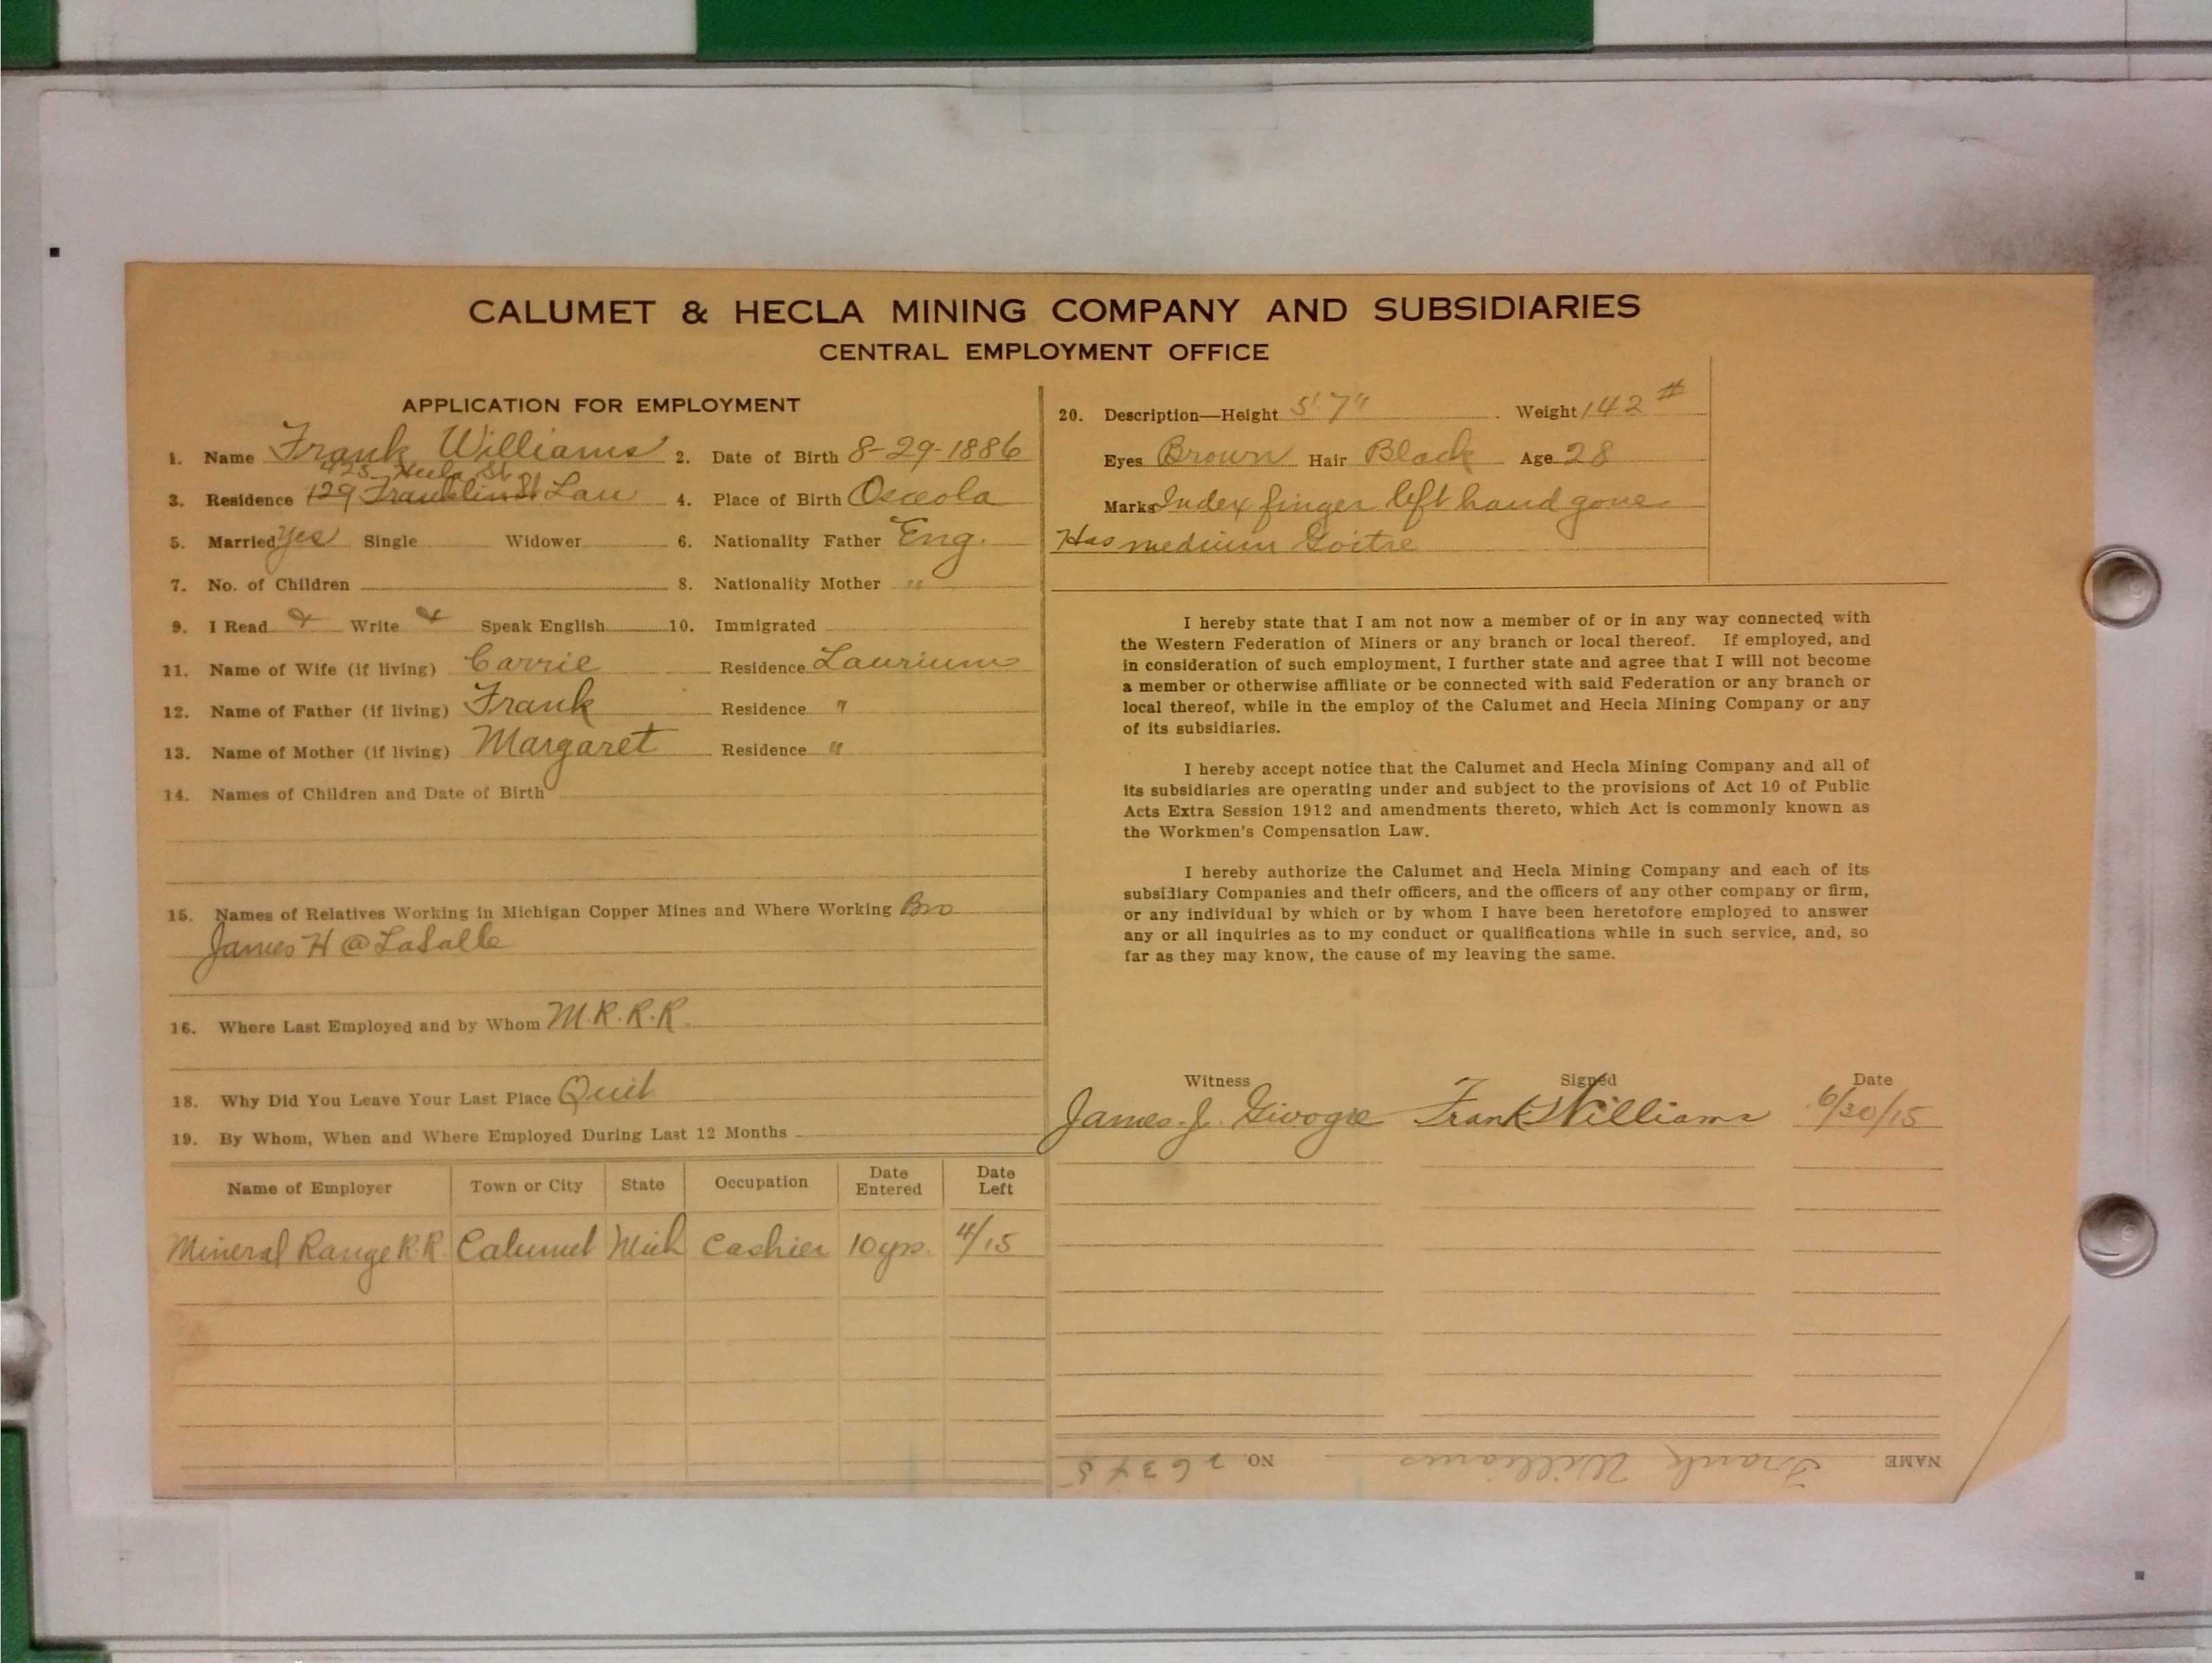 CALUMET & HECLA MINING COMPANY AND SUBSIDIARIES
CENTRAL EMPLOYMENT OFFICE
APPLICATION FOR EMPLOYMENT
1. Name Frank Williams 2. Date of Birth 8-29-1886
425 Hecla St
3. Residence 129 Franklin St Lau 4. Place of Birth Osceola
5. Married yes Single Widower 6. Nationality Father Eng.
7. No. of Children 8. Nationality Mother "
9. I Read Write Speak English 10. Immigrated
11. Name of Wife (if living) Carrie Residence Laurium
12. Name of Father (if living) Frank Residence "
13. Name of Mother (if living) Margaret Residence "
14. Names of Children and Date of Birth
15. Names of Relatives Working in Michigan Copper Mines and Where Working Bro
James H @ LaSalle
16. Where Last Employed and by Whom M.R.R.R.
18. Why Did You Leave Your Last Place Quit
19. By Whom, When and Where Employed During Last 12 Months
Name of Employer Town or City State Occupation Date Entered Date Left
Mineral Range R.R. Calumet Mich Cashier 10 yrs. 4/15
20. Description—Height 5' 7" Weight 142 #
Eyes Brown Hair Black Age 28
Marks Index finger left hand gone
Has medium Goitre
I hereby state that I am not now a member of or in any way connected with
the Western Federation of Miners or any branch or local thereof. If employed, and
in consideration of such employment, I further state and agree that I will not become
a member or otherwise affiliate or be connected with said Federation or any branch or
local thereof, while in the employ of the Calumet and Hecla Mining Company or any
of its subsidiaries.
I hereby accept notice that the Calumet and Hecla Mining Company and all of
its subsidiaries are operating under and subject to the provisions of Act 10 of Public
Acts Extra Session 1912 and amendments thereto, which Act is commonly known as
the Workmen's Compensation Law.
I hereby authorize the Calumet and Hecla Mining Company and each of its
subsidiary Companies and their officers, and the officers of any other company or firm,
or any individual by which or by whom I have been heretofore employed to answer
any or all inquiries as to my conduct or qualifications while in such service, and, so
far as they may know, the cause of my leaving the same.
Witness Signed Date
James J. Frank Williams 6/30/15
NAME Frank Williams NO.